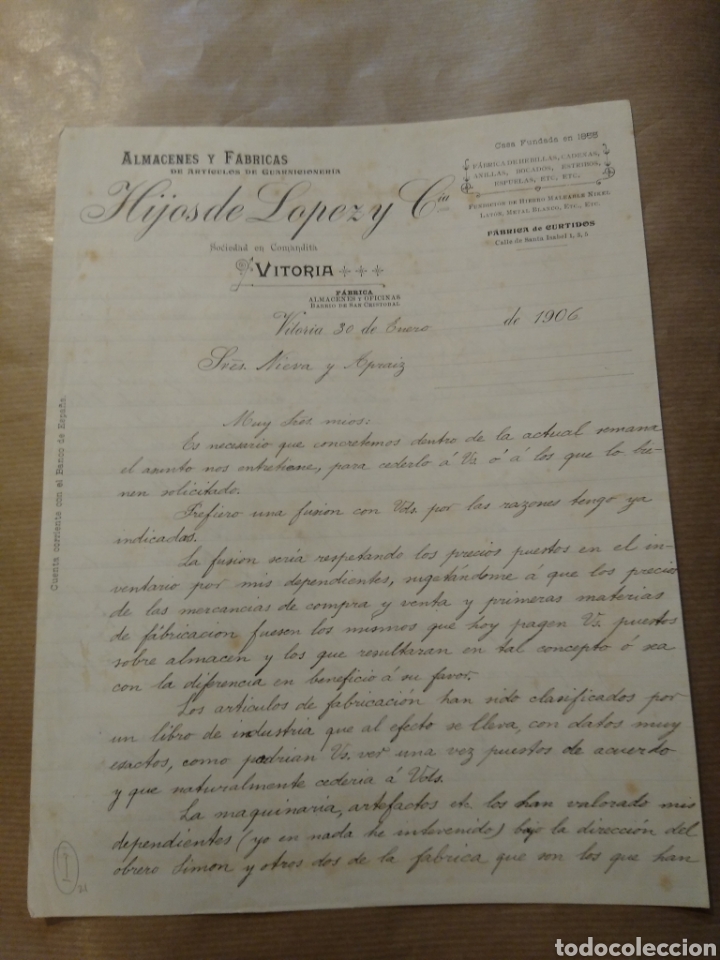 Casa Fundada en 1858
ALMACENES Y FÁBRICAS
DE ARTÍCULOS DE GUARNICIONERIA
Hijos de Lopez y Cía
Sociedad en Comandita
VITORIA
FÁBRICA
ALMACENES Y OFICINAS
BARRIO DE SAN CRISTOBAL
FÁBRICA DE HEBILLAS, CADENAS,
ANILLAS, BOCADOS, ESTRIBOS,
ESPUELAS, ETC. ETC.
FUNDICION DE HIERRO MALEABLE NIKEL
LATON, METAL BLANCO, ETC., ETC.
FÁBRICA de CURTIDOS
Calle de Santa Isabel 1, 3, 5
Vitoria 30 de Enero de 1906
Srēs. Nieva y Apraiz
Muy Srēs mios:
Es necesario que concretemos dentro de la actual semana
el asunto nos entretiene, para cederlo á Vs. ó á los que lo tie-
nen solicitado.
Prefiero una fusion con Vds. por las razones tengo ya
indicadas.
La fusion sería respetando los precios puestos en el in-
ventario por mis dependientes, sugetándome á que los precios
de las mercancias de compra y venta y primeras materias
de fábricacion fuesen los mismos que hoy pagen Vs. puestos
sobre almacen y los que resultaran en tal concepto ó sea
con la diferencia en beneficio á su favor.
Los artículos de fabricación han sido clasificados por
un libro de industria que al efecto se lleva, con datos muy
exactos, como podrian Vs. ver una vez puestos de acuerdo
y que naturalmente cederia á Vds.
La maquinaria, artefactos etc. los han valorado mis
dependientes (yo en nada he intervenido) bajo la dirección del
obrero Simon y otros dos de la fabrica que son los que han
Cuenta corriente con el Banco de España
todocoleccion